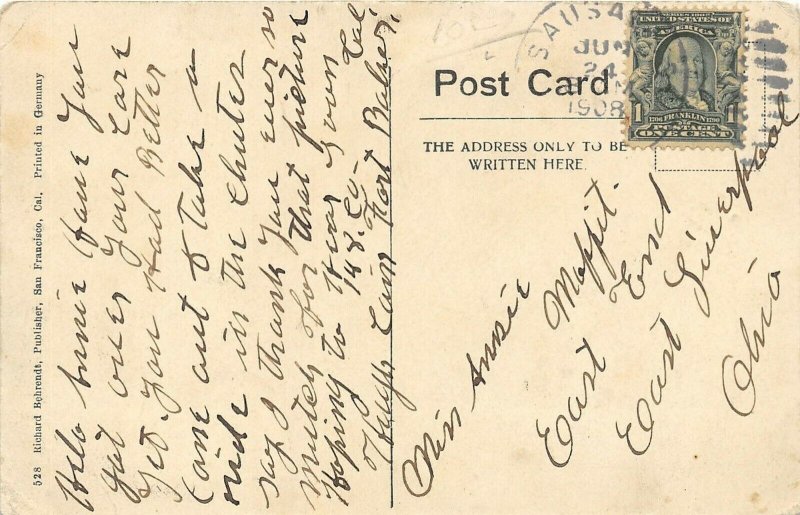 Helo Annie Have You
got over Your Care
Yet. You Had Better
Come out & take a
ride in the Chutes
say I thank You ever so
mutch for that picture
Hoping to Hear Soon
148. Co- Cal.
Cain Fort Baker,
528 Richard Behrendt, Publisher, San Francisco, Cal. Printed in Germany
SAUSA
JUN
24
1908
Post Card
THE ADDRESS ONLY TO BE
WRITTEN HERE.
SERIES 1902
UNITED STATES OF
AMERICA
1 FRANKLIN 1
1706 1790
POSTAGE
ONE CENT
Miss Annie Moffit.
East End
East Liverpool
Ohio